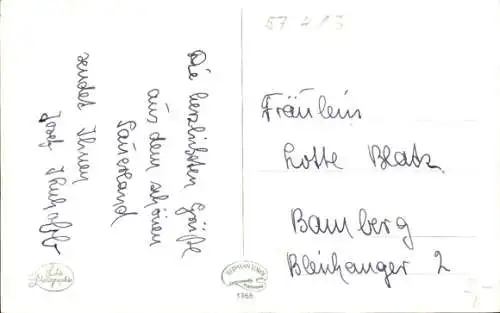 57 4 13
Die herzlichsten Grüße
aus dem schönen
Sauerland
sendet Ihnen
Josef
Fräulein
Lotte Blatz
Bamberg
Bleichanger 2
1968